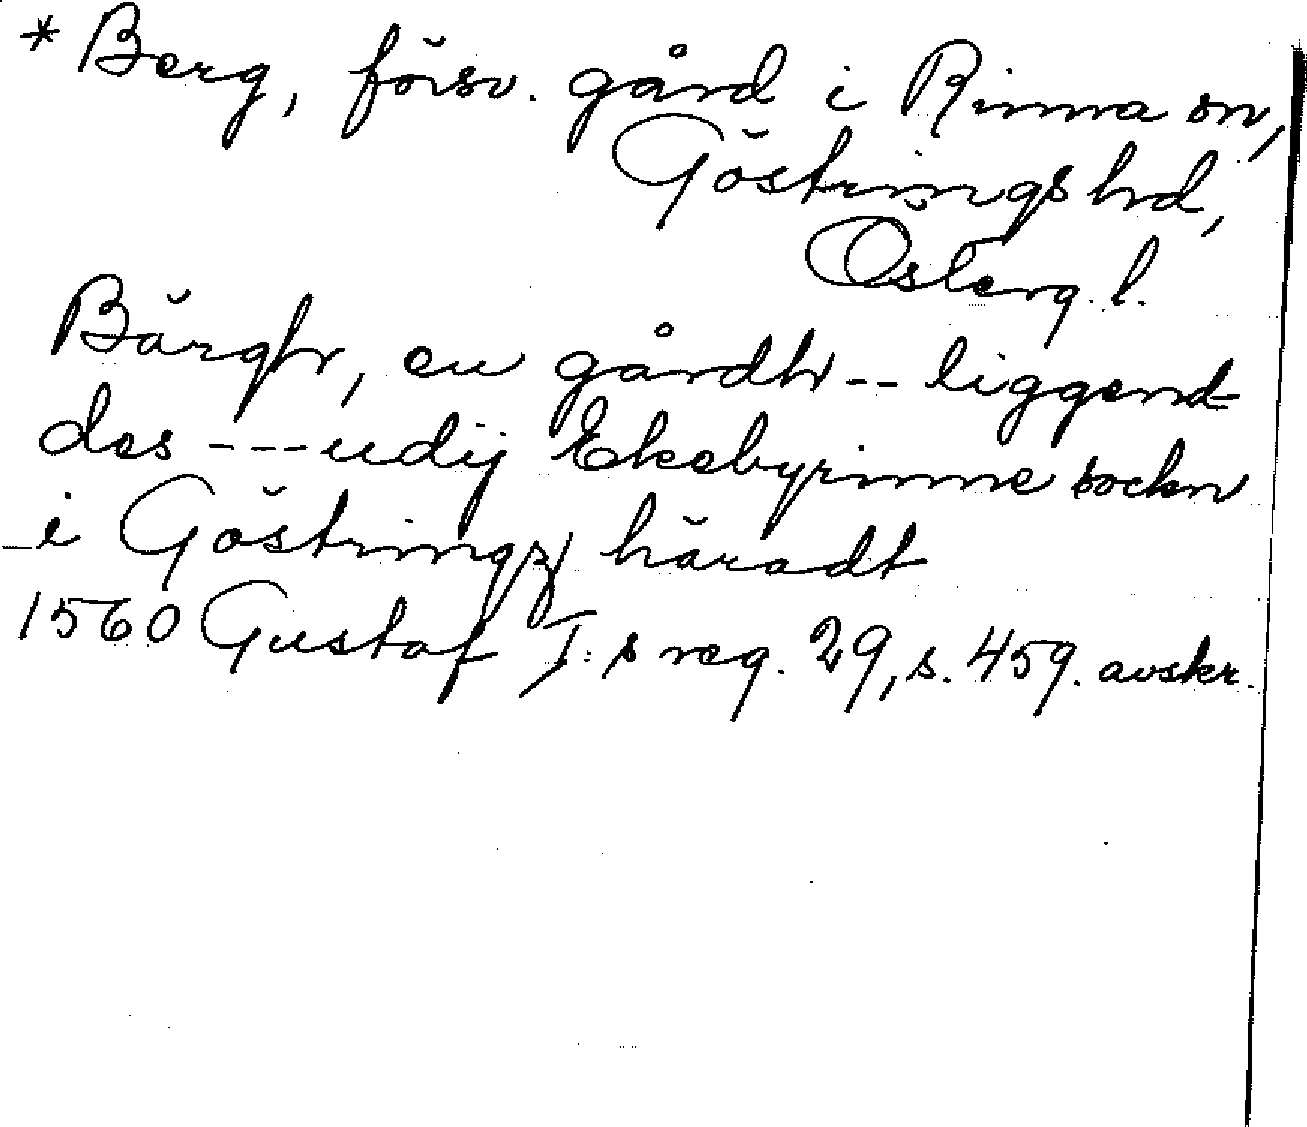 * Berg, försv. gård i Rinna sn,
Göstrings hd,
Österg. l.
Bärgh, en gårdh -- liggend-
des --- udij Ekebyrinne sockn
i Göstringz häradt
1560 Gustaf I:s reg. 29, s. 459. avskr.